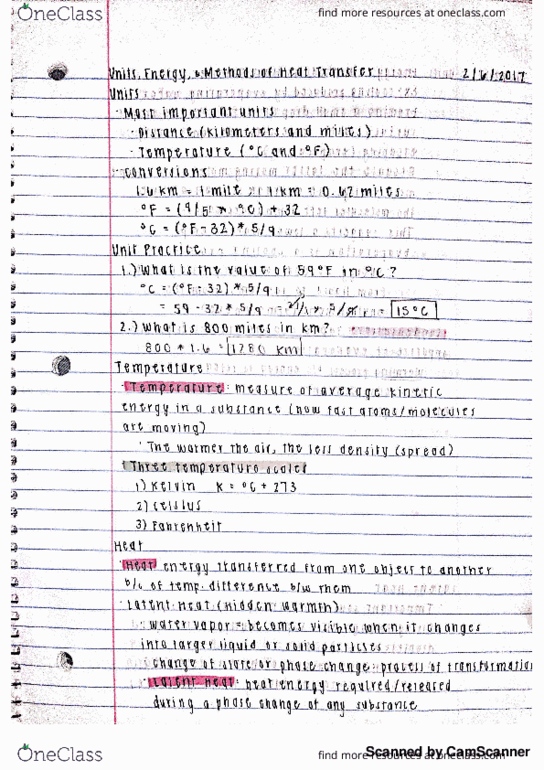 OneClass
find more resources at oneclass.com
Units, Energy, & Methods of Heat Transfer 2/6/2017
Units
· Most important units
· Distance (kilometers and miles)
· Temperature (°C and °F)
· Conversions
1.6 km = 1 mile 1 km = 0.62 miles
°F = (9/5 * °C) + 32
°C = (°F - 32) * 5/9
Unit Practice
1.) What is the value of 59°F in °C?
°C = (°F - 32) * 5/9
= 59 - 32 * 5/9 = 27 * 5/9 = 15°C
2.) What is 800 miles in km?
800 * 1.6 = 1280 km
Temperature
· Temperature: measure of average kinetic
energy in a substance (how fast atoms/molecules
are moving)
· The warmer the air, the less density (spread)
· Three temperature scales
1) Kelvin K = °C + 273
2) Celsius
3) Fahrenheit
Heat
· Heat: energy transferred from one object to another
b/c of temp. difference b/w them
· Latent heat (hidden warmth)
· water vapor = becomes visible when it changes
into larger liquid or solid particles
· change of state or phase change: process of transformation
· Latent heat: heat energy required/released
during a phase change of any substance
OneClass
find more resources at oneclass.com
Scanned by CamScanner